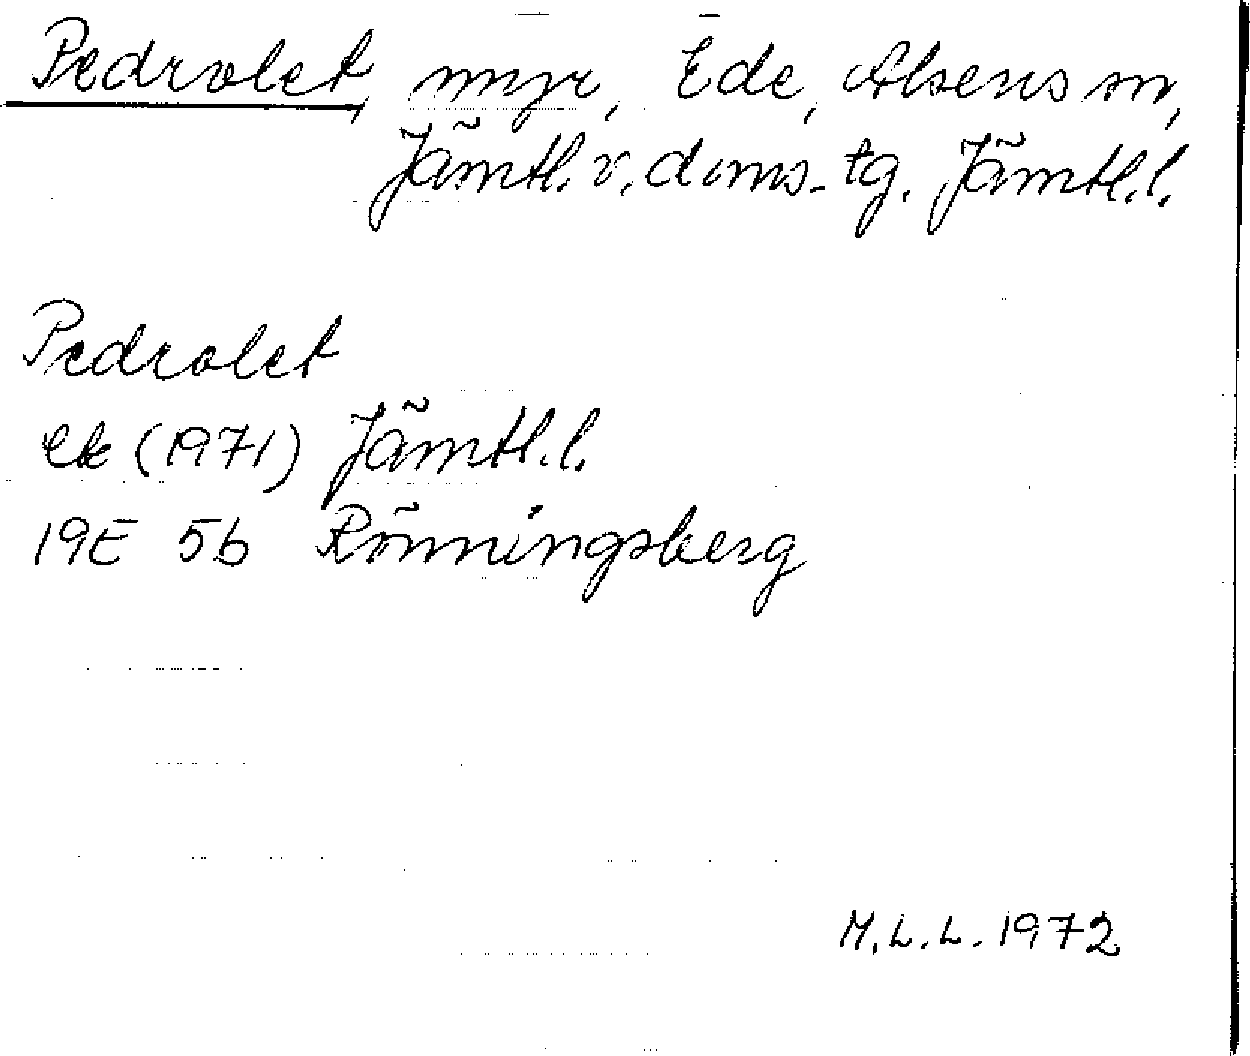 Pedrolet, myr, Ede, Alsens sn,
Jämtl. v. doms. tg. Jämtl. l.
Pedrolet
ek (1971) Jämtl. l.
19E 5b Rönningsberg
M.L.L. 1972